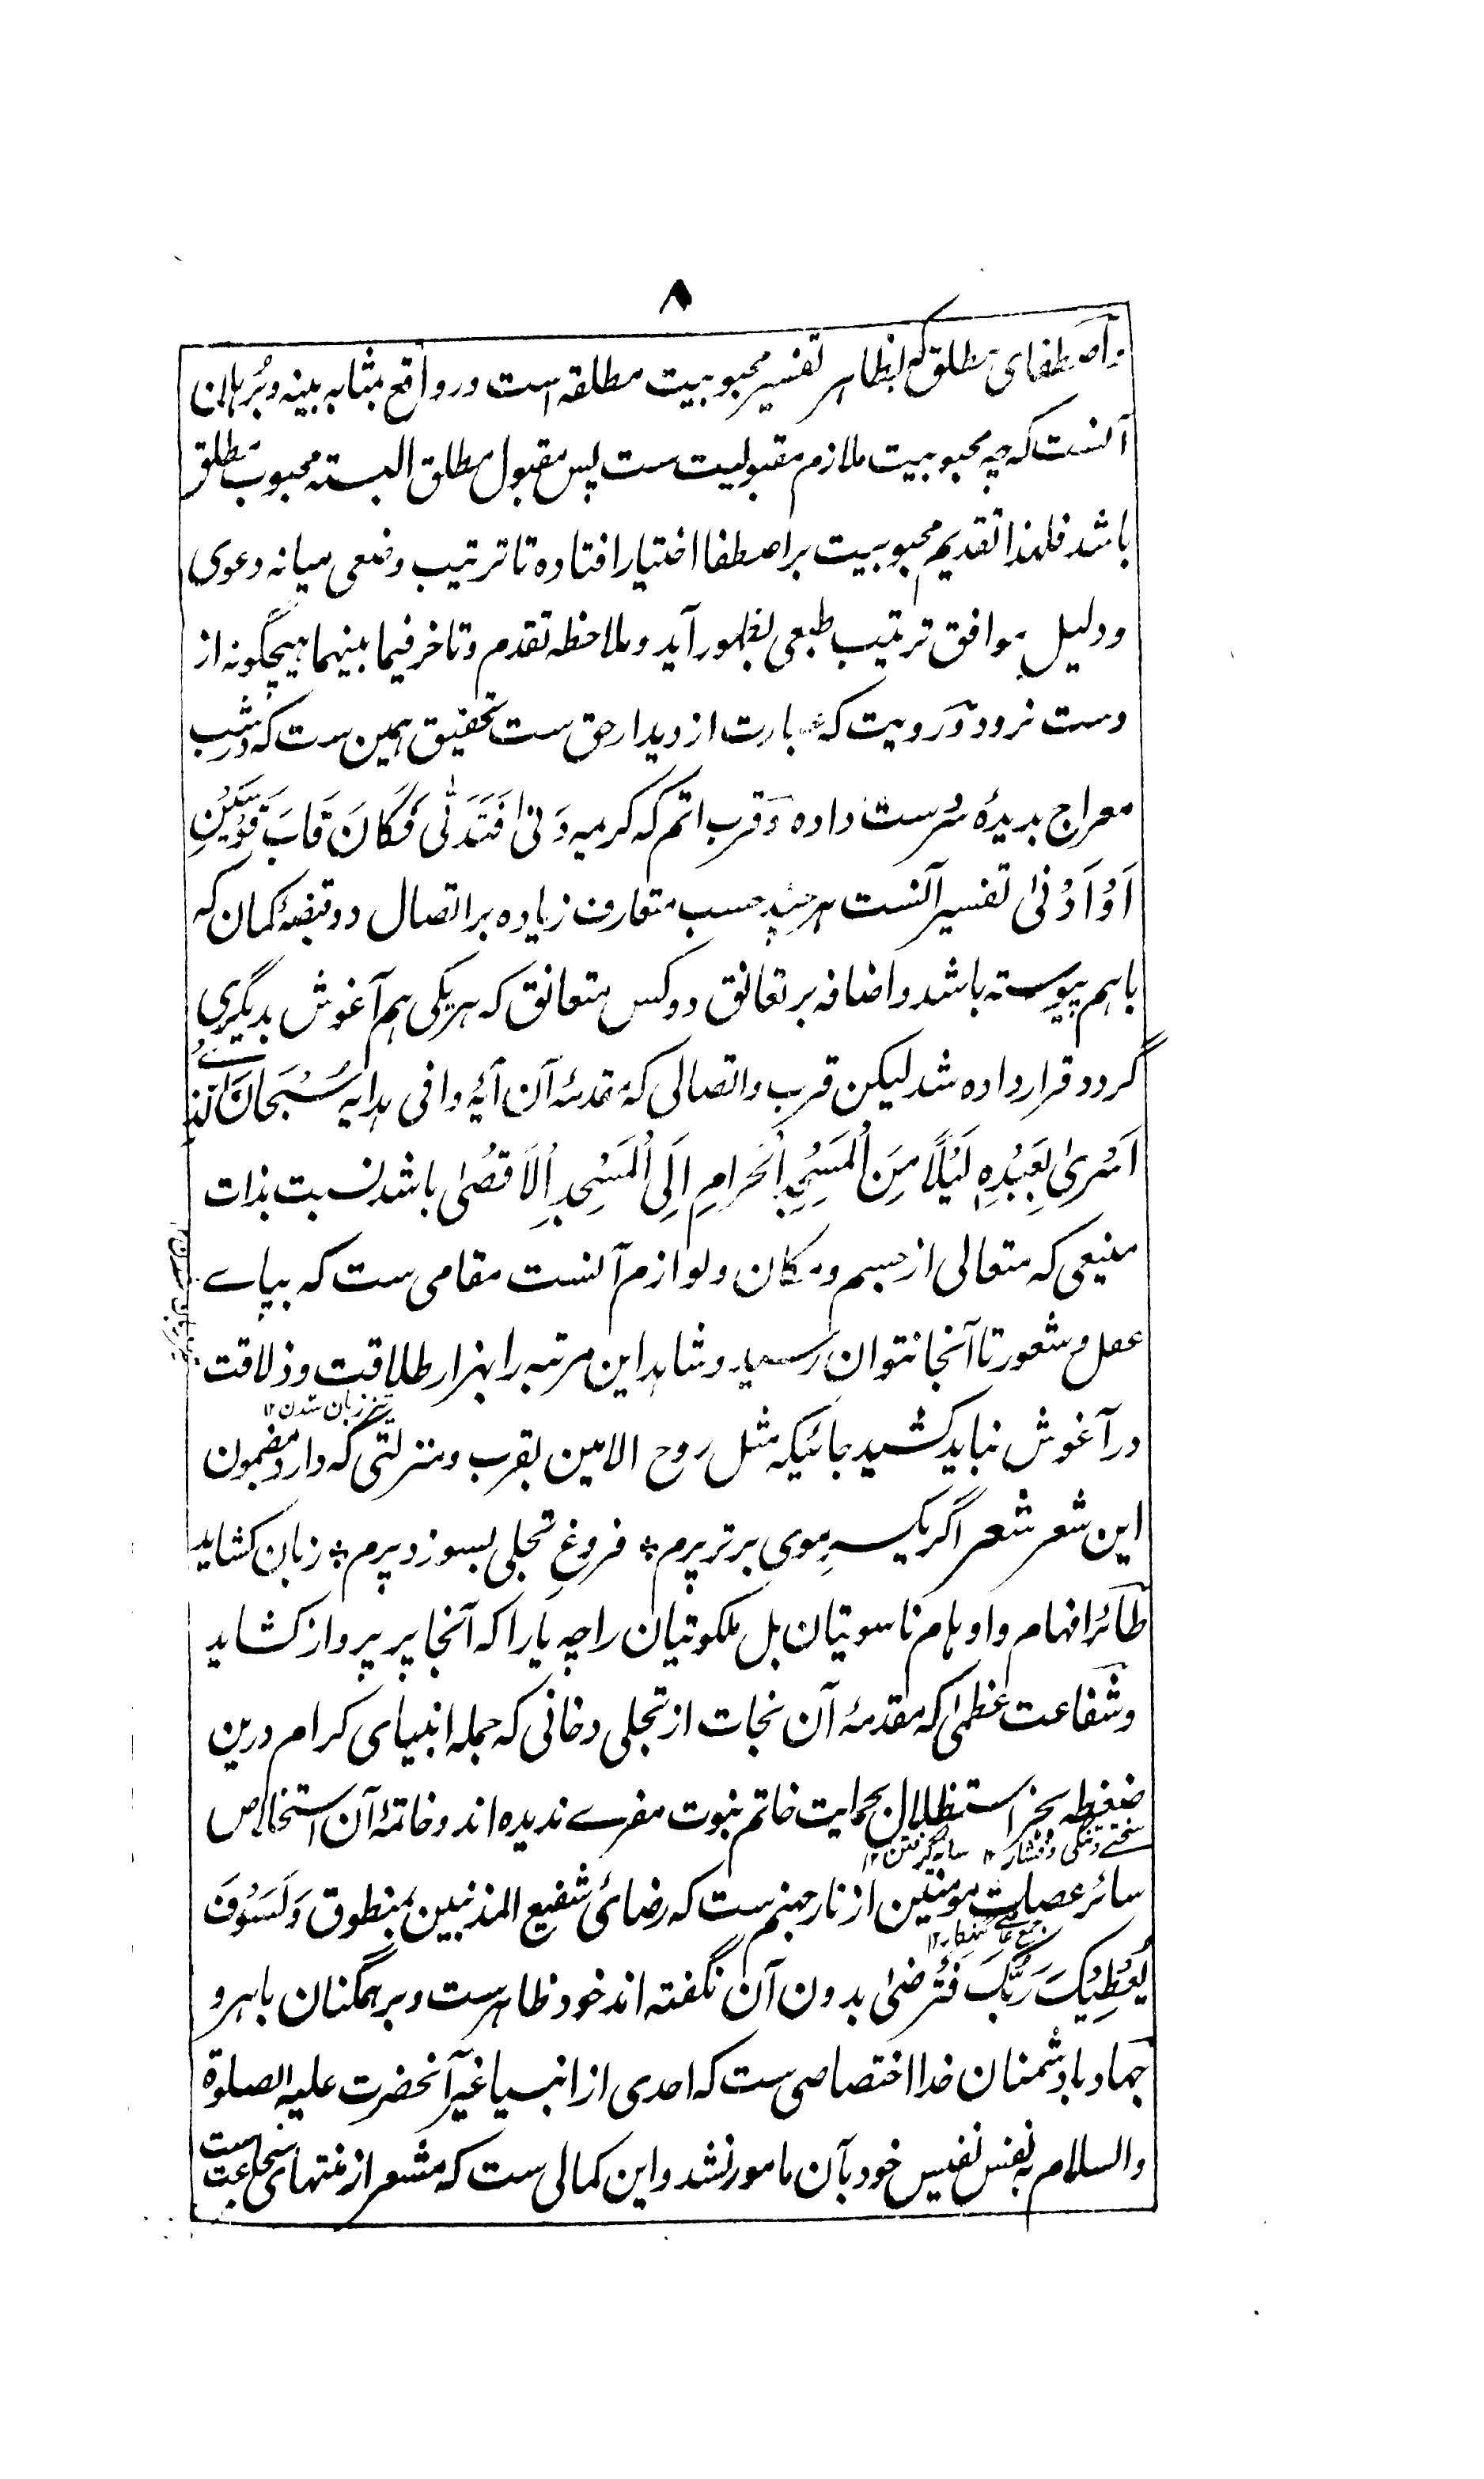 ۸
واصطفای مطلق که بظاهر تفسیر محبوبیت مطلقه است در واقع بمثابه بینه و بُرهان
آنست که چه محبوبیت ملازم مقبولیت ست پس مقبول مطلق البسته محبوب مطلق
باشد فلهذا تقدیم محبوبیت بر اصطفا اختیار افتاده تا ترتیب وضعی میانه دعوی
و دلیل موافق ترتیب طبعی بظهور آید و ملاحظه تقدم و تاخر فیما بینهما هیچگونه از
دست نرود و رویت که عبارت از دیدار حق ست تحقیق همین ست که در شب
معراج بدیدهٔ سر ست داده و قرب اتم که کریمه دَنیٰ فَتَدَلّٰی فَکَانَ قَابَ قَوْسَیْنِ
اَوْ اَدْنیٰ تفسیر آنست هر چند حسب متعارف زیاده بر اتصال دو قبضهٔ کمان که
باهم پیوسته باشد و اضافه بر تعانق دو کس متعانق که هر یکی هم آغوش بدیگری
گردد قرار داده شد لیکن قرب و اتصالی که مقدمهٔ آن آیهٔ وافی هدایه سُبْحَانَ الَّذِیْ
اَسْریٰ بِعَبْدِهٖ لَیْلًا مِنَ الْمَسْجِدِ الْحَرَامِ اِلَی الْمَسْجِدِ الْاَقْصٰی باشد نسبت بذات
منیعی که متعالی از جسم و مکان و لوازم آنست مقامی ست که بپاے
عقل و شعور تا آنجا نتوان رسید و شاهد این مرتبه را بهزار طلاقت و ذلاقت
تیز زبان شدن ۱۲
در آغوش نباید کشید جائیکه مثل روح الامین بقرب و منزلتی که دارد مضمون
این شعر شعر اگر یک سرِ موی برتر پرم ٭ فروغِ تجلی بسوزد پرم ٭ زبان کشاید
طائر افهام و اوهام ناسوتیان بل ملکوتیان را چه یارا که آنجا پر پرواز کشاید
و شفاعت عظمیٰ که مقدمهٔ آن نجات از تجلی دخانی که جمله انبیای کرام درین
ضغطه بجز استظلال بحمایت خاتم نبوت مفرے ندیده اند و خاتمهٔ آن استخلاص
سختے و تنگی و فشار ۱۲ سایه گرفتن ۱۲
سائر عصات مومنین از نار جهنم ست که رضائی شفیع المذنبین بمنطوق وَلَسَوْفَ
جمع عاصے گنهگار ۱۲
یُعْطِیْکَ رَبُّکَ فَتَرْضیٰ بدون آن نگفته اند خود ظاهرست و بر همگنان باهر و
جهاد با دشمنان خدا اختصاصی ست که احدی از انبیا غیر آنحضرت علیه الصلوة
والسلام به نفس نفیس خود بآن مامور نشد و این کمالی ست که مشعر از منتهای شجاعت ست